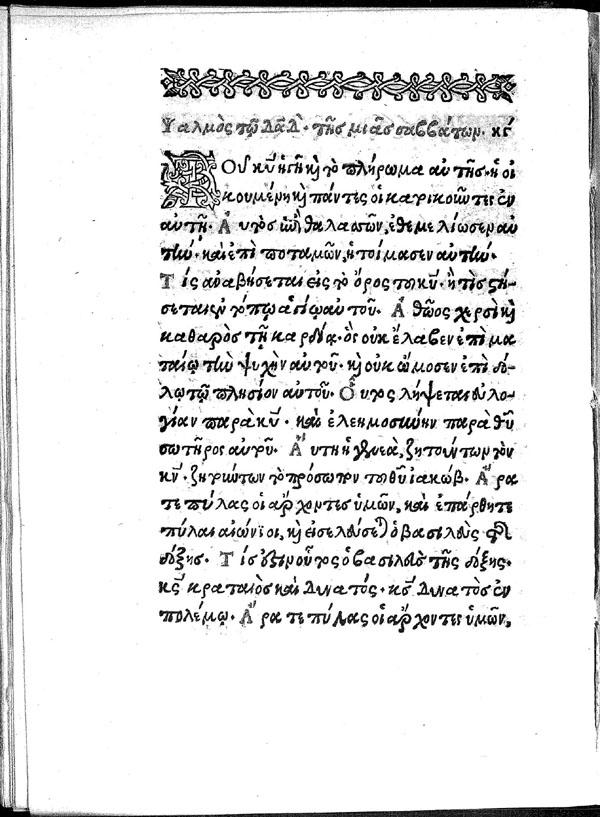 Ψαλμὸς τῷ Δαδ · τῆς μιᾶς σαββάτων · κγ
Τοῦ κυ ἡ γῆ κὶ τὸ πλήρωμα αὐτῆς · ἡ οἰ
κουμένη κὶ πάντες οἱ κατοικοῦντες ἐν
αὐτῇ · Αὐτὸς ἐπὶ θαλασσῶν, ἐθεμελίωσεν αὐ
τὴν · καὶ ἐπὶ ποταμῶν, ἡτοίμασεν αὐτήν ·
Τίς ἀναβήσεται εἰς τὸ ὄρος τοῦ κυ · ἢ τίς στή
σεται ἐν τόπῳ ἁγίῳ αὐτοῦ · Ἀθῶος χερσὶ κὶ
καθαρὸς τῇ καρδίᾳ · ὃς οὐκ ἔλαβεν ἐπὶ μα
ταίῳ τὴν ψυχὴν αὐτοῦ · κὶ οὐκ ὤμοσεν ἐπὶ δό
λῳ τῷ πλησίον αὐτοῦ · Οὗτος λήψεται εὐλο
γίαν παρὰ κυ · καὶ ἐλεημοσύνην παρὰ θυ
σωτῆρος αὐτοῦ · Αὕτη ἡ γενεὰ, ζητούντων τὸν
κν · ζητούντων τὸ πρόσωπον τοῦ θυ ἰακώβ · Ἄρα
τε πύλας οἱ ἄρχοντες ὑμῶν, καὶ ἐπάρθητε
πύλαι αἰώνϊοι, κὶ εἰσελεύσεται ὁ βασιλεὺς τῆς
δόξης · Τίς ἐστιν οὗτος ὁ βασιλεὺς τῆς δόξης ·
κς κραταιὸς καὶ δυνατός · κς δυνατὸς ἐν
πολέμῳ · Ἄρατε πύλας οἱ ἄρχοντες ὑμῶν,